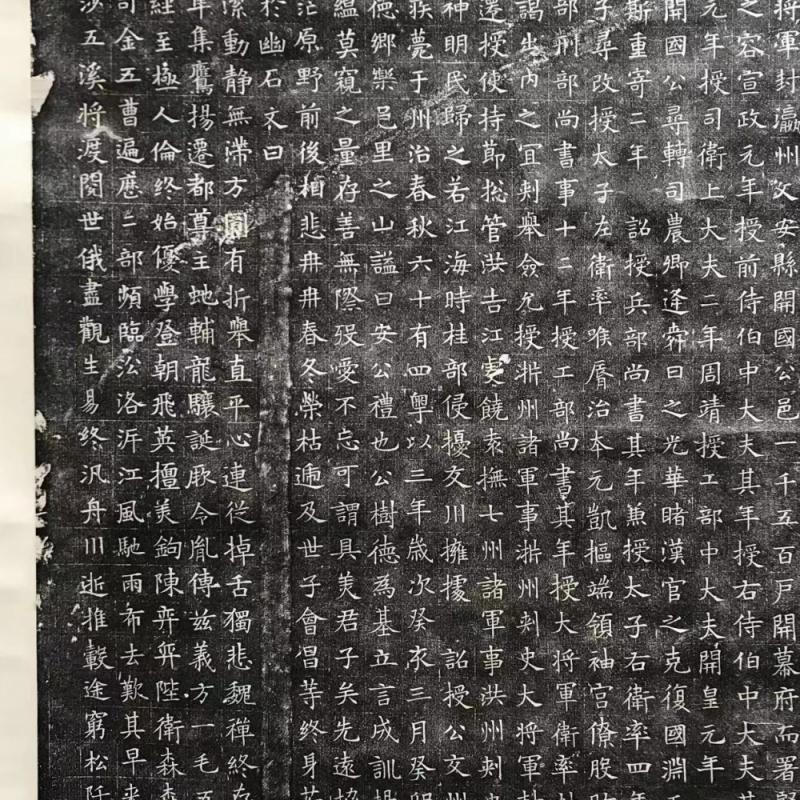 將軍封瀛州文安縣開國公邑一千五百戶開幕府而署
之容宣政元年授前侍伯中大夫其年授右侍伯中大夫其
元年授司衛上大夫二年周靖授工部中大夫開皇元年
開國公尋轉司農卿逢舜日之光華睹漢官之克復國淵
斯重寄二年 詔授兵部尚書其年兼授太子右衛率四年
子尋改授太子左衛率喉脣治本元凱樞端領袖宮僚股肱
部刑部尚書事十二年授工部尚書其年授大將軍衛率
謁出內之宜刺舉僉允授浙州諸軍事浙州刺史大將軍
遷授使持節総管洪吉江虔饒袁撫七州諸軍事洪州刺史
神明民歸之若江海時桂部侵擾交川擁據 詔授公交州
疾薨于州治春秋六十有四粵以三年歲次癸亥三月癸卯
德鄉樂邑里之山謚曰安公禮也公樹德為基立言成訓
蘊莫窺之量存善無際歿愛不忘可謂具美君子矣先遠
茫原野前後相悲冉冉春冬榮枯遞及世子會昌等終身
於幽石文曰
潔動靜無滯方圓有折舉直平心連從掉舌獨悲魏禪終存
年集鷹揚遷都尊主虵輔龍驤誕厥令胤傳茲義方一毛五
經至極人倫終始優學登朝飛英擅美鉤陳弈弈陛衛森森
司金五曹遍歷二部頻臨沿洛泝江風馳雨布去艱其早來
沙五溪将渡閱世俄盡觀生易終汎舟川逝推轂途窮松阡